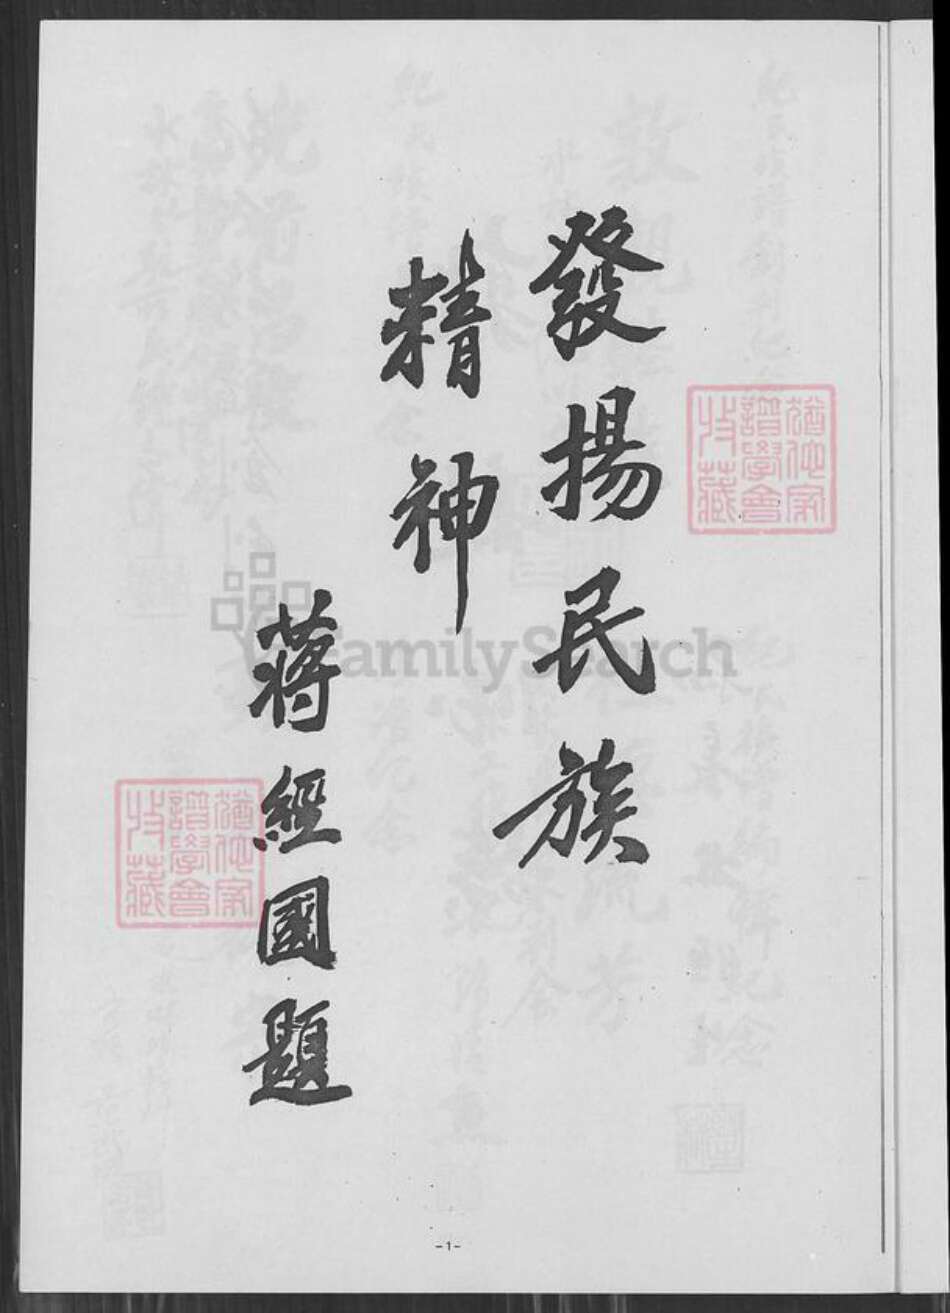 發揚民族
精神
蔣經國題
猶他家
譜學會
收藏
猶他家
譜學會
收藏
FamilySearch
-1-